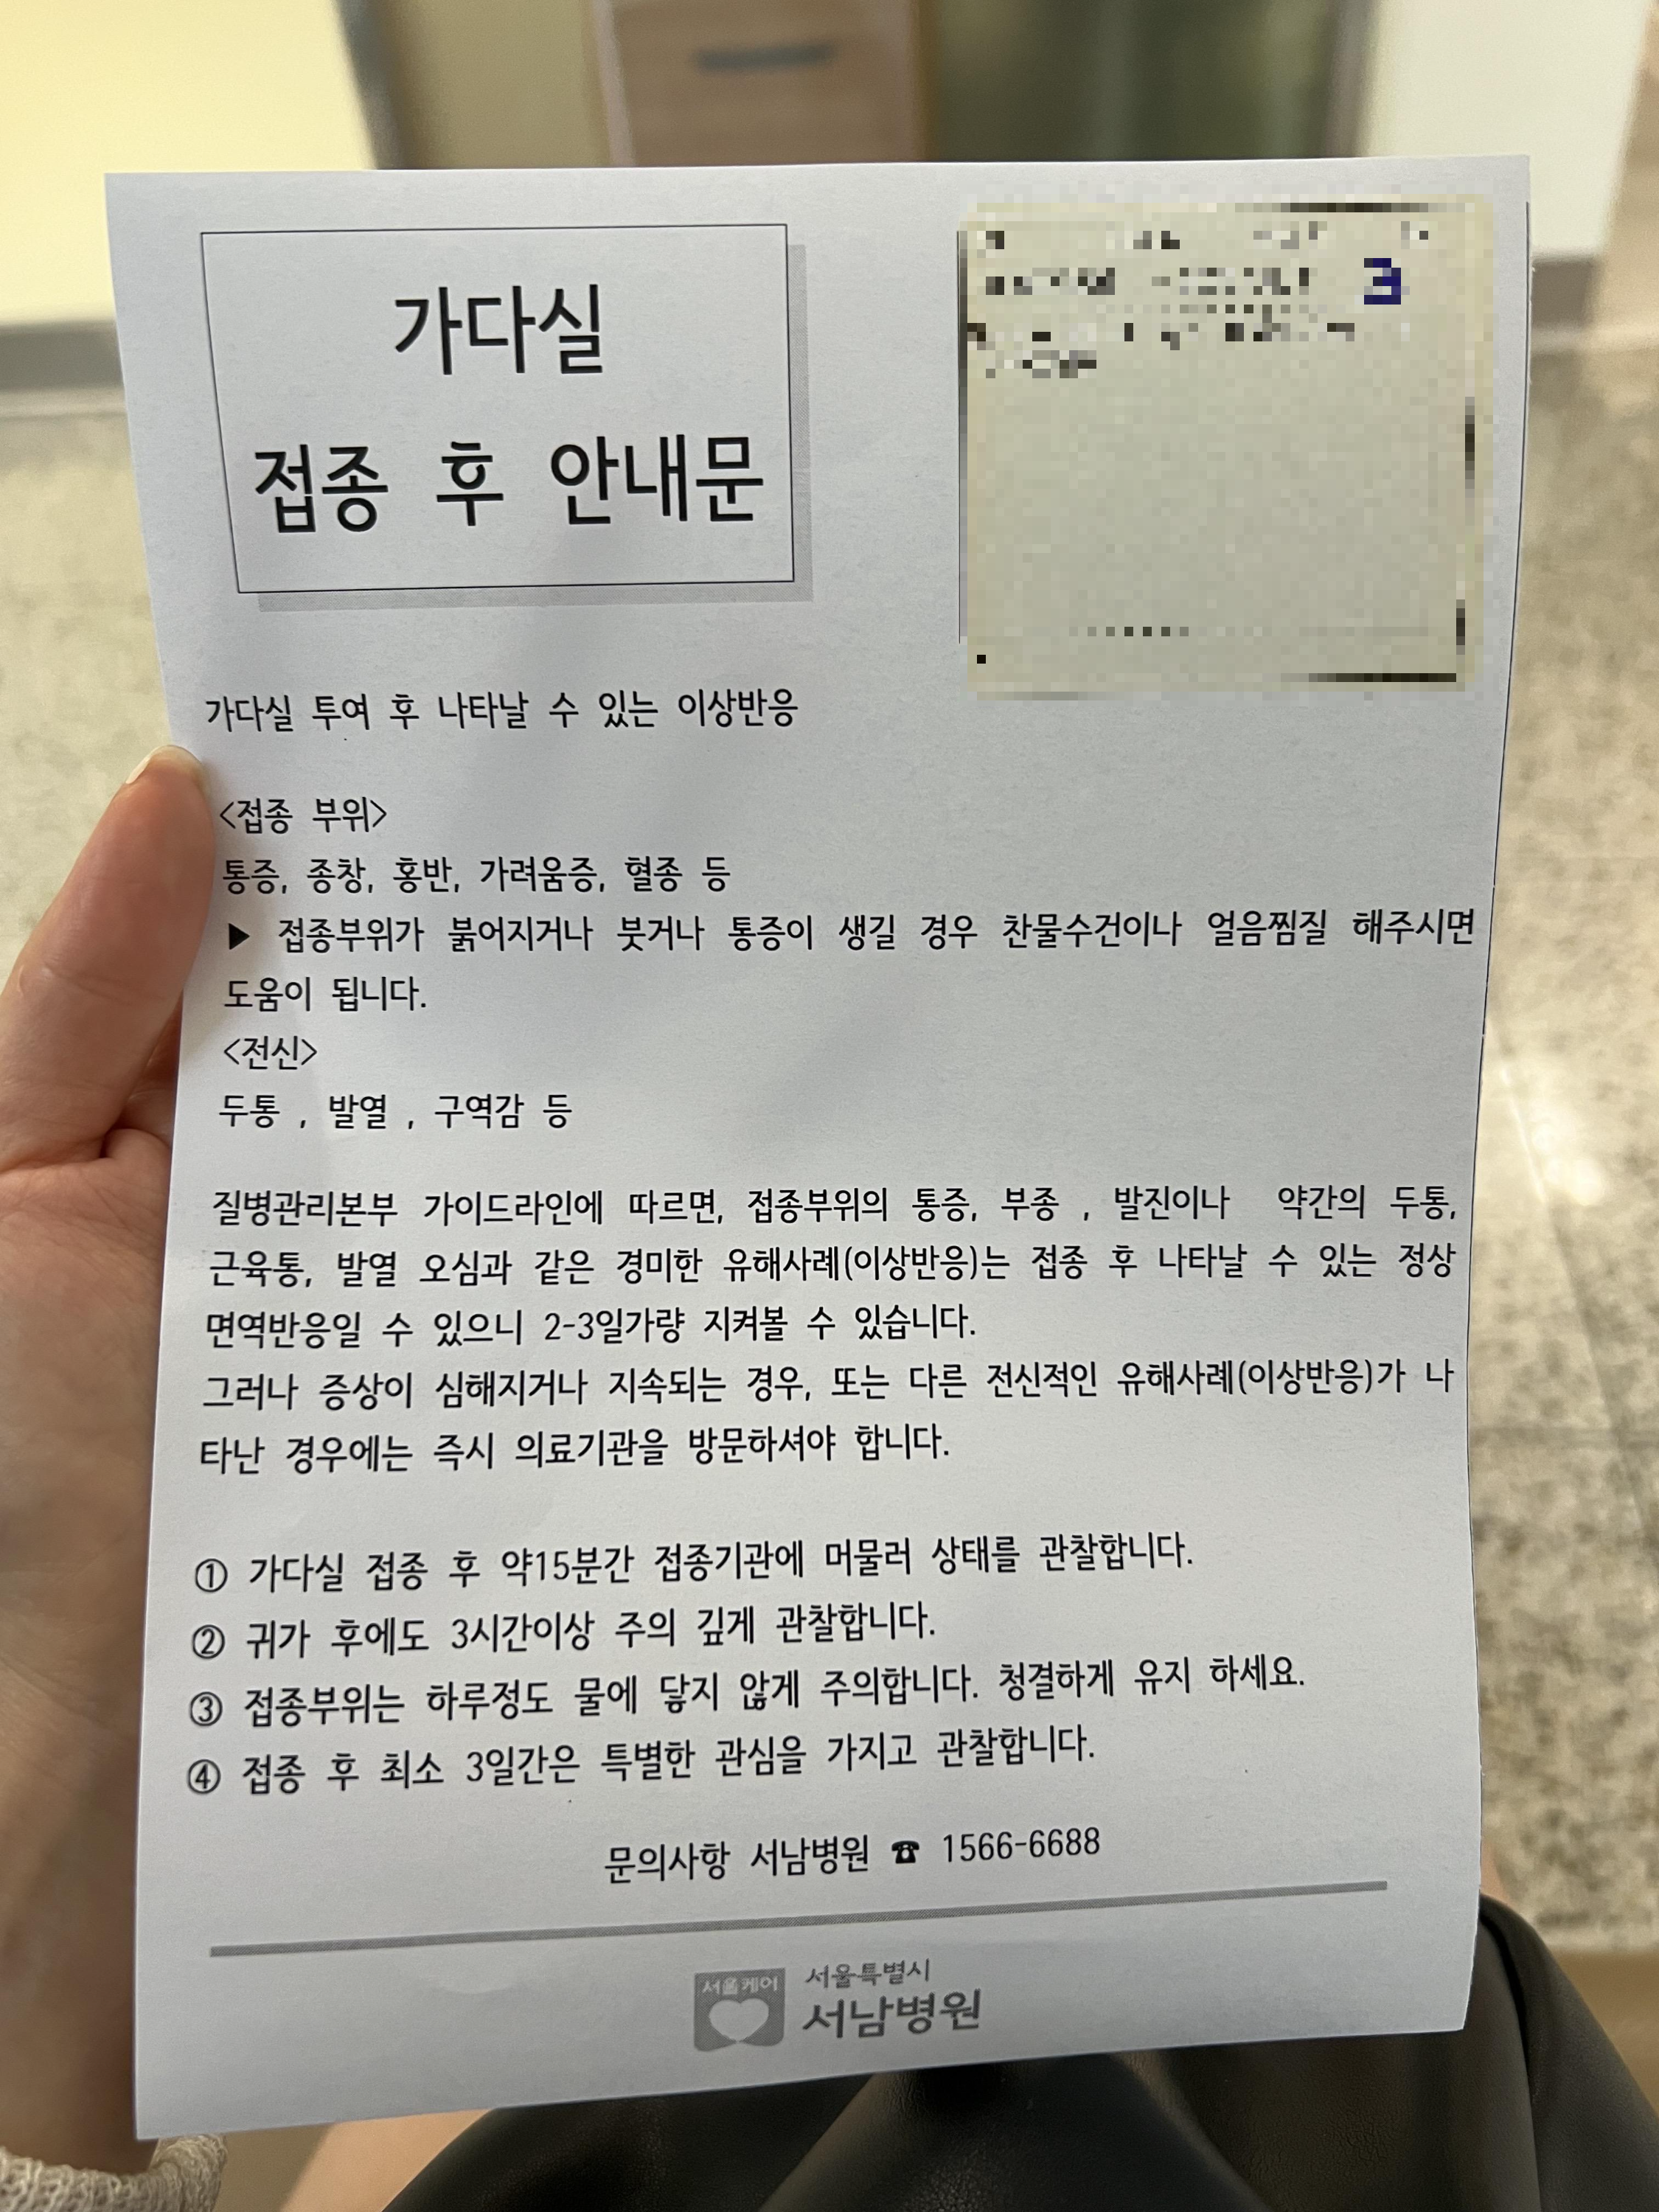 가다실
접종 후 안내문
3
가다실 투여 후 나타날 수 있는 이상반응
<접종 부위>
통증, 종창, 홍반, 가려움증, 혈종 등
▶ 접종부위가 붉어지거나 붓거나 통증이 생길 경우 찬물수건이나 얼음찜질 해주시면
도움이 됩니다.
<전신>
두통 , 발열 , 구역감 등
질병관리본부 가이드라인에 따르면, 접종부위의 통증, 부종 , 발진이나 약간의 두통,
근육통, 발열 오심과 같은 경미한 유해사례(이상반응)는 접종 후 나타날 수 있는 정상
면역반응일 수 있으니 2-3일가량 지켜볼 수 있습니다.
그러나 증상이 심해지거나 지속되는 경우, 또는 다른 전신적인 유해사례(이상반응)가 나
타난 경우에는 즉시 의료기관을 방문하셔야 합니다.
① 가다실 접종 후 약15분간 접종기관에 머물러 상태를 관찰합니다.
② 귀가 후에도 3시간이상 주의 깊게 관찰합니다.
③ 접종부위는 하루정도 물에 닿지 않게 주의합니다. 청결하게 유지 하세요.
④ 접종 후 최소 3일간은 특별한 관심을 가지고 관찰합니다.
문의사항 서남병원 ☎ 1566-6688
서울케어
서울특별시
서남병원